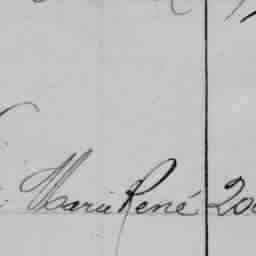 Marie René 20